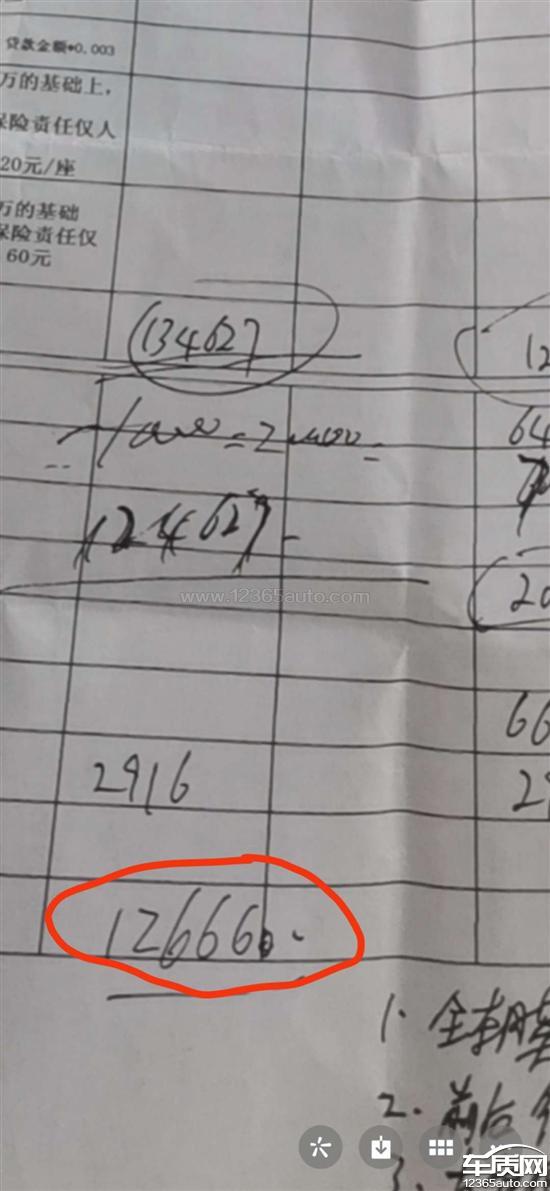 贷款金额*0.003
万的基础上,
保险责任仅人
20元/座
万的基础
保险责任仅
60元
134627
12
64
124627
www.12365auto.com
20
66
2916
29
12666
1. 全
2. 前后
3.
车质网
12365auto.com